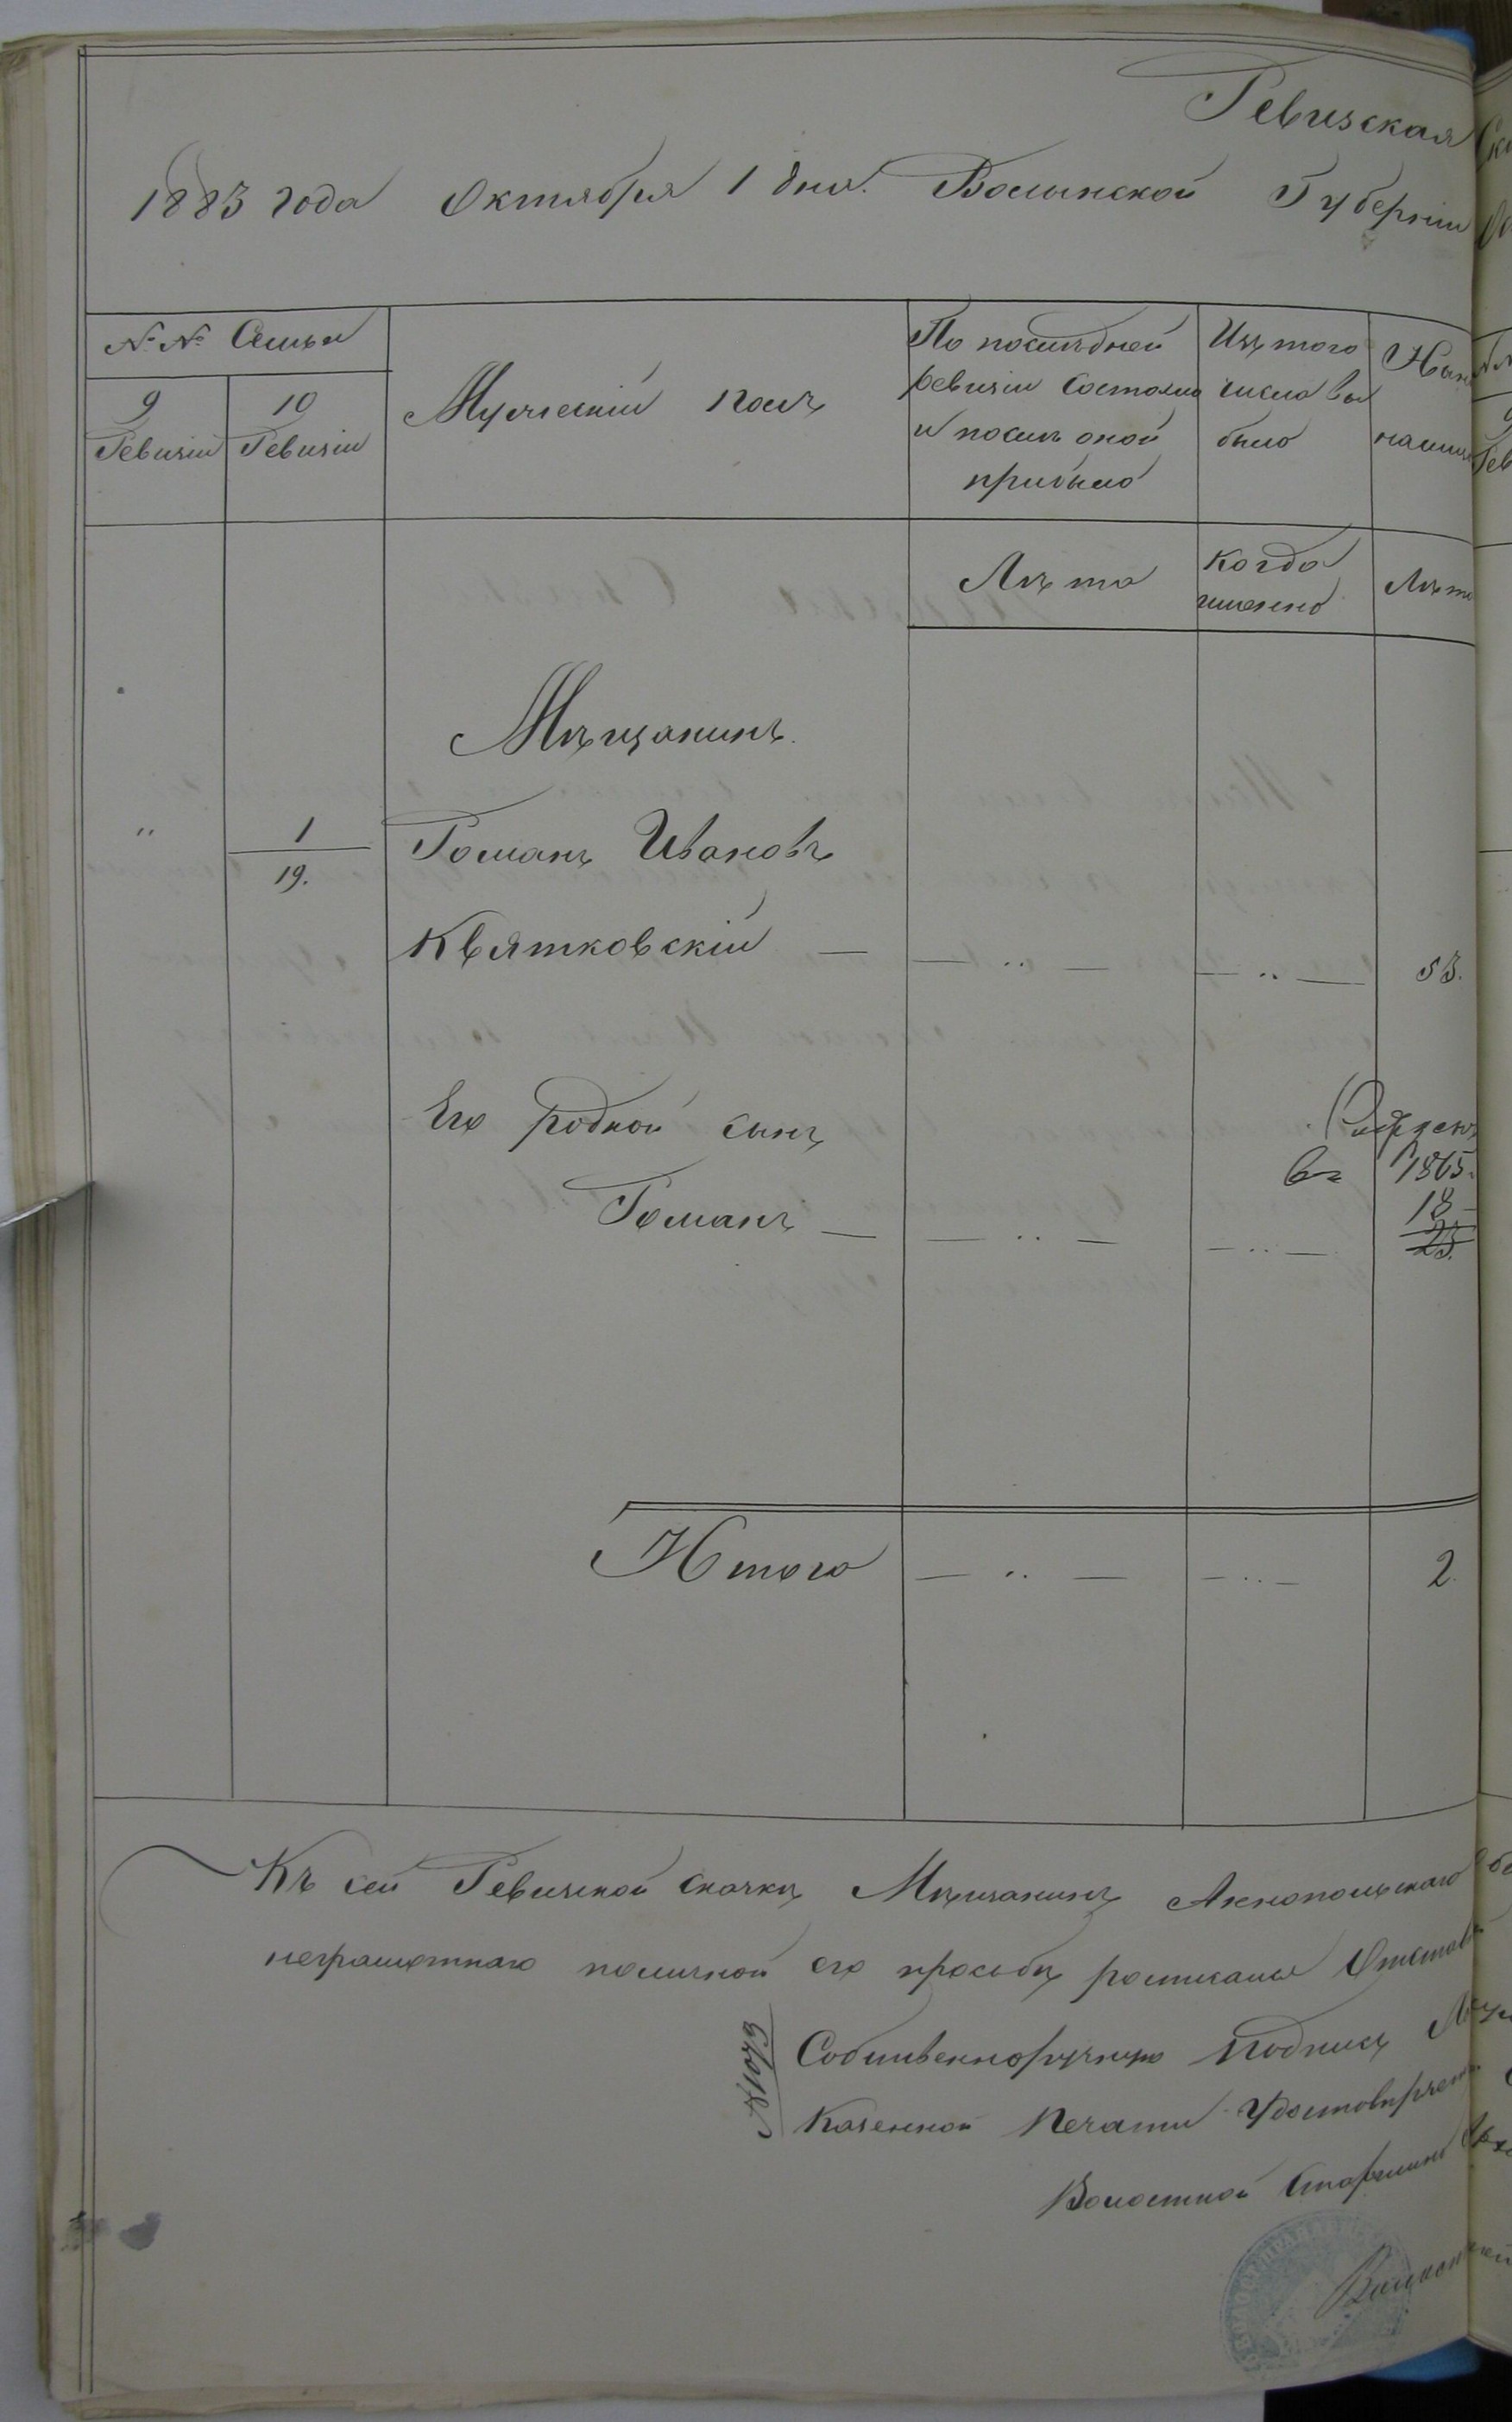 Ревизская
1883 года Октября 1 дня. Волынской Губерніи
№ № Семьи
9 Ревизіи
10 Ревизіи
Мужескій полъ
По послѣдней ревизіи состояло и послѣ оной прибыло
Изъ того числа выбыло
Нынѣ на лицо
Лѣта
когда именно
Лѣта
Мѣщанинъ.
" 1 Романъ Ивановъ
19.
Квятковскій — — " — — " — 53.
Его родной сынъ
въ 1865.
18
Романъ — — " — — " — 23.
Итого — " — — " — 2.
Къ сей Ревизской сказкѣ Мѣщанинъ
неграмотнаго по личной его просьбѣ росписался
№1073
Собственноручную подпись
Казенной Печати Удостовѣряетъ
Волостной Старшина